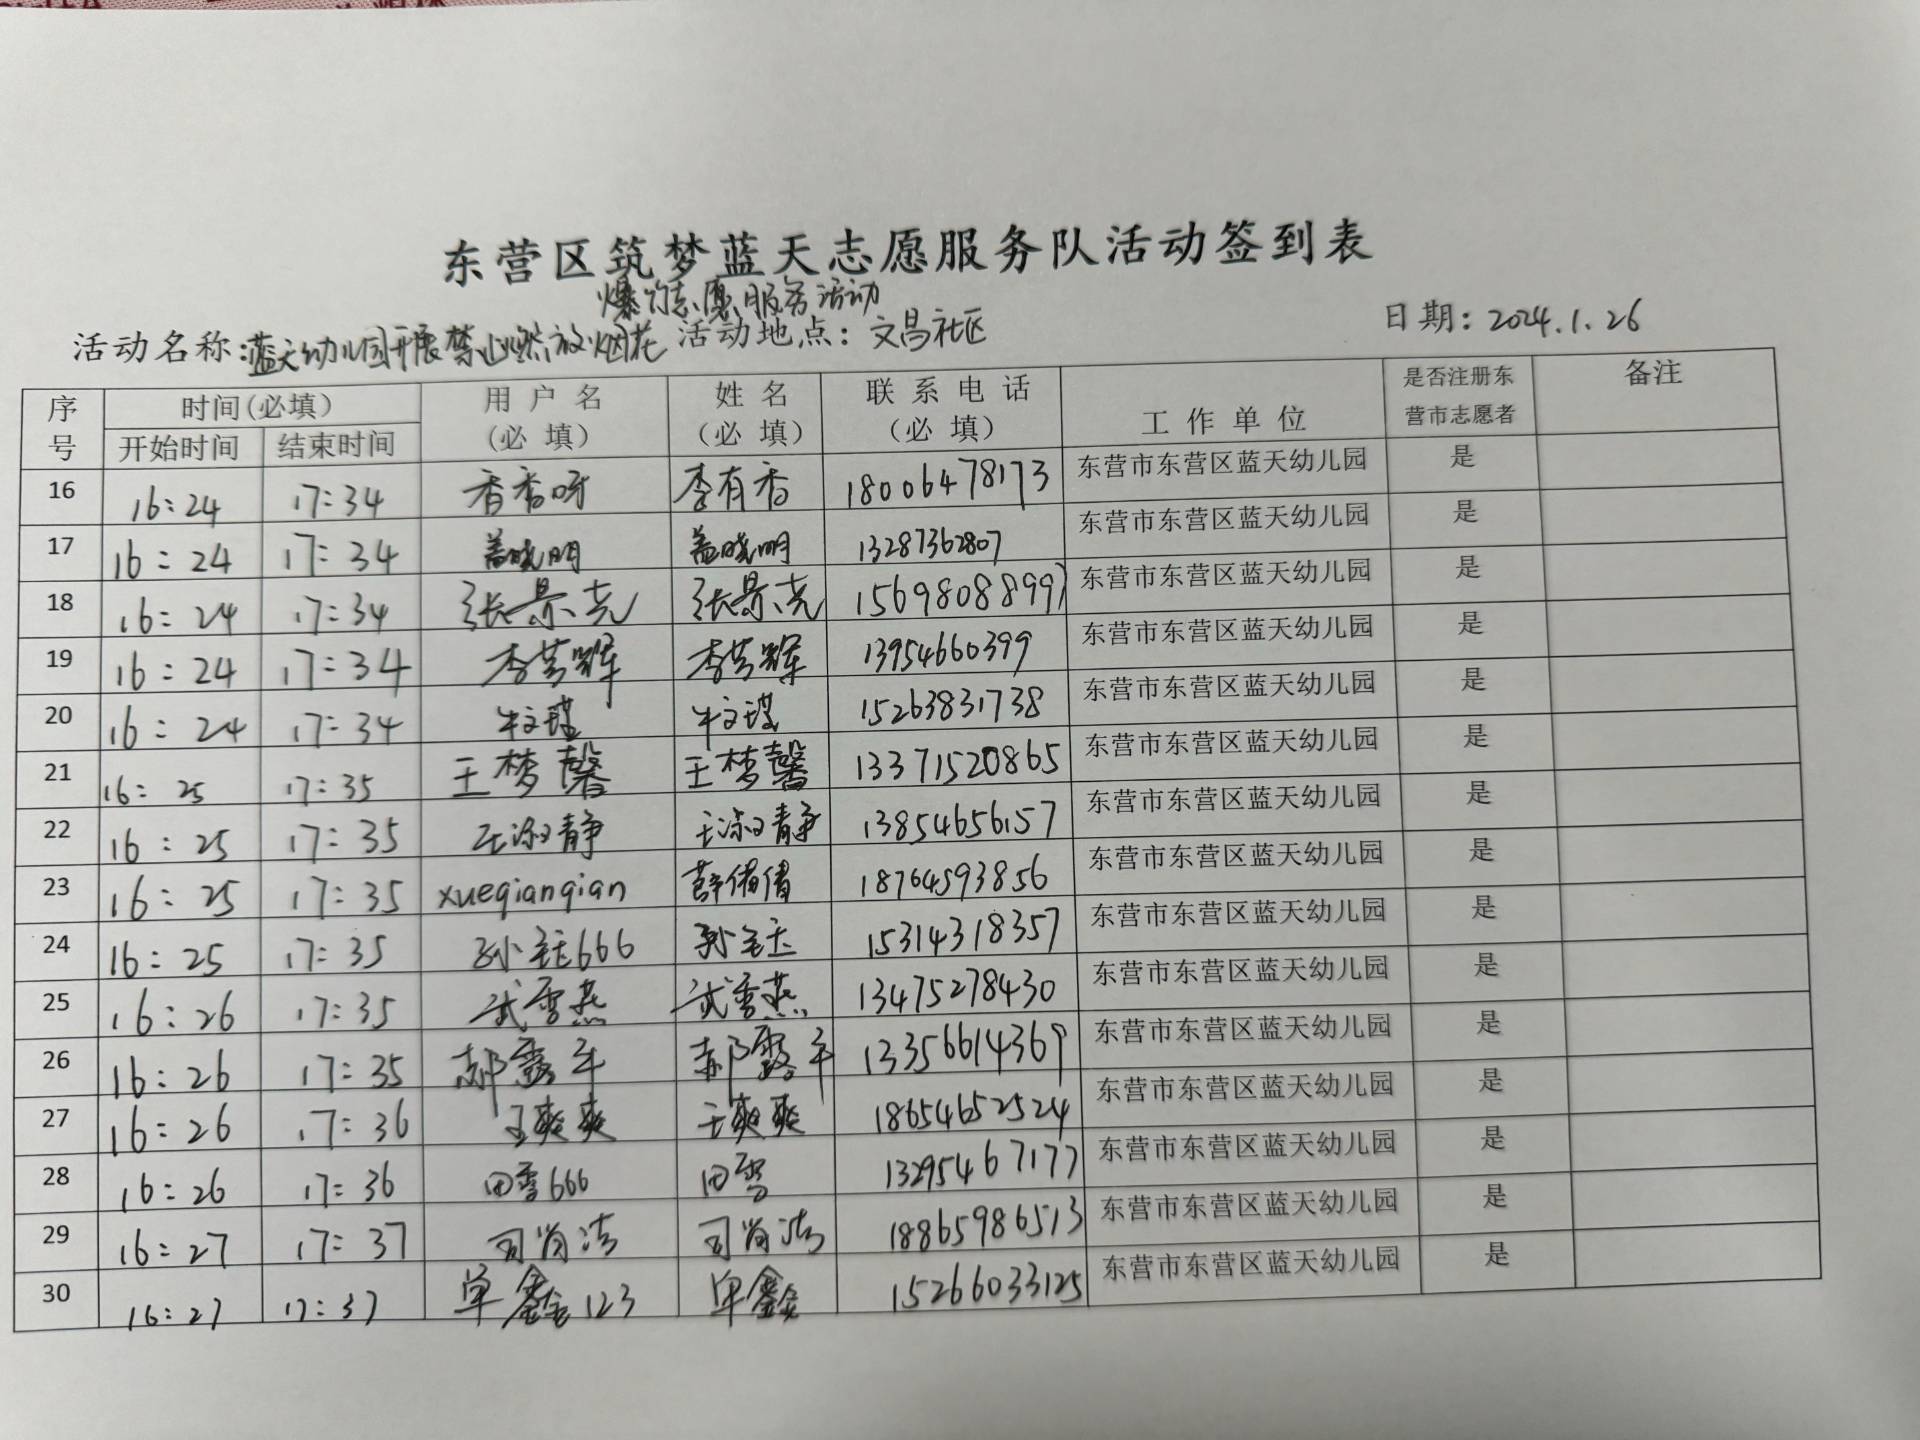 东营区筑梦蓝天志愿服务队活动签到表
爆竹志愿服务活动
活动名称:蓝天幼儿园开展禁止燃放烟花 活动地点：文昌社区 日期：2024.1.26
序号 时间(必填) 用户名(必填) 姓名(必填) 联系电话(必填) 工作单位 是否注册东营市志愿者 备注
开始时间 结束时间
16 16:24 17:34 香香呀 李有香 18006478173 东营市东营区蓝天幼儿园 是
17 16:24 17:34 盖晓明 盖晓明 13287362807 东营市东营区蓝天幼儿园 是
18 16:24 17:34 张景亮 张景亮 15698088997 东营市东营区蓝天幼儿园 是
19 16:24 17:34 李芸辉 李芸辉 13954660399 东营市东营区蓝天幼儿园 是
20 16:24 17:34 牛文瑾 牛文瑾 15263831738 东营市东营区蓝天幼儿园 是
21 16:25 17:35 王梦馨 王梦馨 13371520865 东营市东营区蓝天幼儿园 是
22 16:25 17:35 王淑静 王淑静 13854656157 东营市东营区蓝天幼儿园 是
23 16:25 17:35 xueqianqian 薛倩倩 18764593856 东营市东营区蓝天幼儿园 是
24 16:25 17:35 孙钰666 孙钰 15314318357 东营市东营区蓝天幼儿园 是
25 16:26 17:35 武雪燕 武雪燕 13475278430 东营市东营区蓝天幼儿园 是
26 16:26 17:35 郝露平 郝露平 13356614369 东营市东营区蓝天幼儿园 是
27 16:26 17:36 王爽爽 王爽爽 18654652524 东营市东营区蓝天幼儿园 是
28 16:26 17:36 田雪666 田雪 13295467177 东营市东营区蓝天幼儿园 是
29 16:27 17:37 司肖洁 司肖洁 18865986513 东营市东营区蓝天幼儿园 是
30 16:27 17:37 单鑫123 单鑫 15266033125 东营市东营区蓝天幼儿园 是